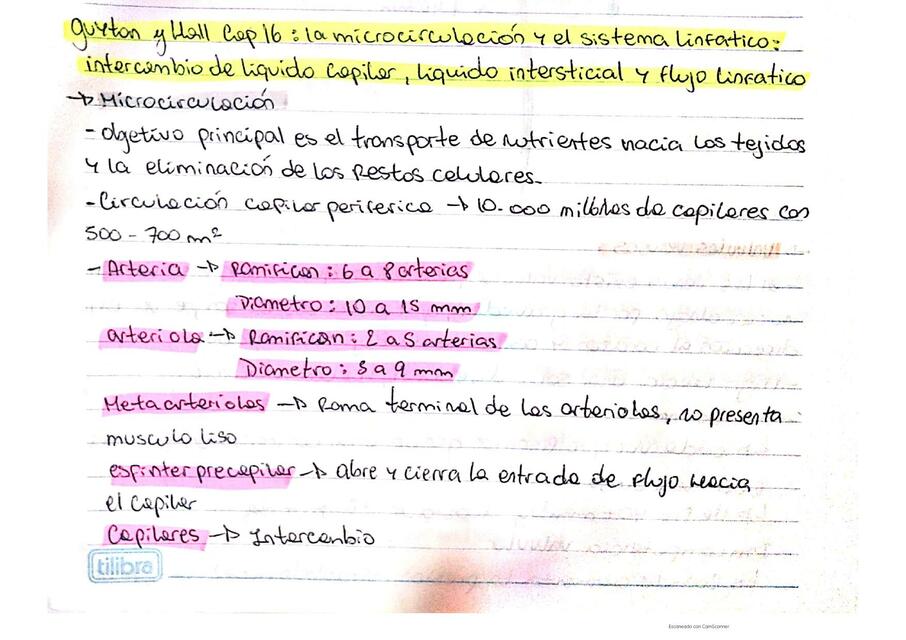 guyton y Hall Cap 16 : la microcirculación y el sistema linfatico :
intercambio de liquido capilar, liquido intersticial y flujo linfatico
→ Microcirculación
- Objetivo principal es el transporte de nutrientes hacia los tejidos
y la eliminación de los Restos celulares.
- Circulación capilar periferica → 10.000 millones de capilares con
500 - 700 m²
- Arteria → Ramifican : 6 a 8 arterias
Diametro : 10 a 15 mm
arteriola → Ramifican : 2 a 5 arterias
Diametro : 5 a 9 mm
Metaarteriolas → Rama terminal de las arteriolas, no presenta
musculo liso
esfinter precapilar → abre y cierra la entrada de flujo hacia
el capilar
Capilares → Intercambio
tilibra
Escaneado con CamScanner